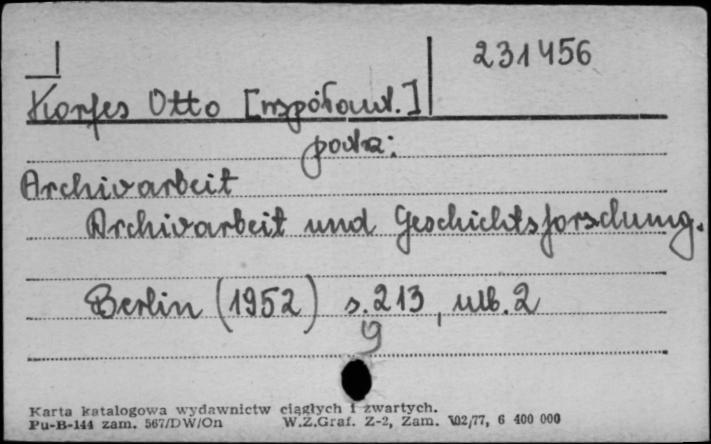 231456
Korfes Otto [współaut.]
patrz:
Archivarbeit
Archivarbeit und Geschichtsforschung.
Berlin (1952) s. 213, ulb. 2
g
Karta katalogowa wydawnictw ciągłych i zwartych.
Pu-B-144 zam. 567/DW/On W.Z.Graf. Z-2, Zam. 102/77, 6 400 000